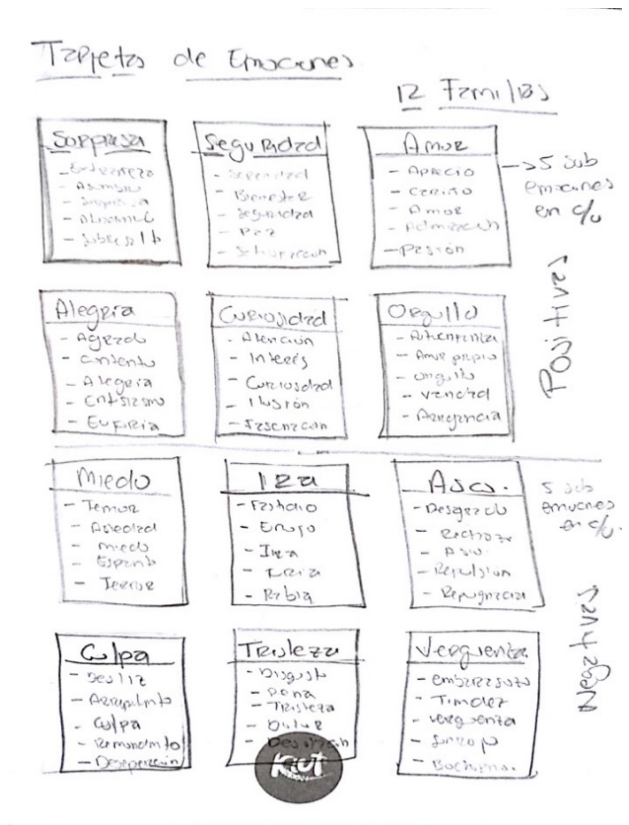 Tarjetas de Emociones
12 Familias
Sorpresa
- Extrañeza
- Asombro
- Sorpresa
- Sobresalto
Seguridad
- Serenidad
- Bienestar
- Seguridad
- Paz
- Satisfacción
Amor
- Aprecio
- Cariño
- Amor
- Admiración
- Pasión
-> 5 sub
emociones
en c/u
Positivas
Alegria
- Agrado
- Contento
- Alegria
- Entusiasmo
- Euforia
Curiosidad
- Atención
- Interés
- Curiosidad
- Ilusión
- Fascinación
Orgullo
- Autenticidad
- Amor propio
- Orgullo
- Vanidad
- Arrogancia
Miedo
- Temor
- Ansiedad
- Miedo
- Espanto
- Terror
Ira
- Fastidio
- Enojo
- Ira
- Furia
- Rabia
Asco.
- Desagrado
- Rechazo
- Asco
- Repulsión
- Repugnancia
5 sub
emociones
en c/u.
Negativas
Culpa
- Desliz
- Culpa
- Desesperación
Tristeza
- Disgusto
- Pena
- Tristeza
- Dolor
Verguenza
- embarazoso
- Timidez
- verguenza
- Bochorno.
KUT